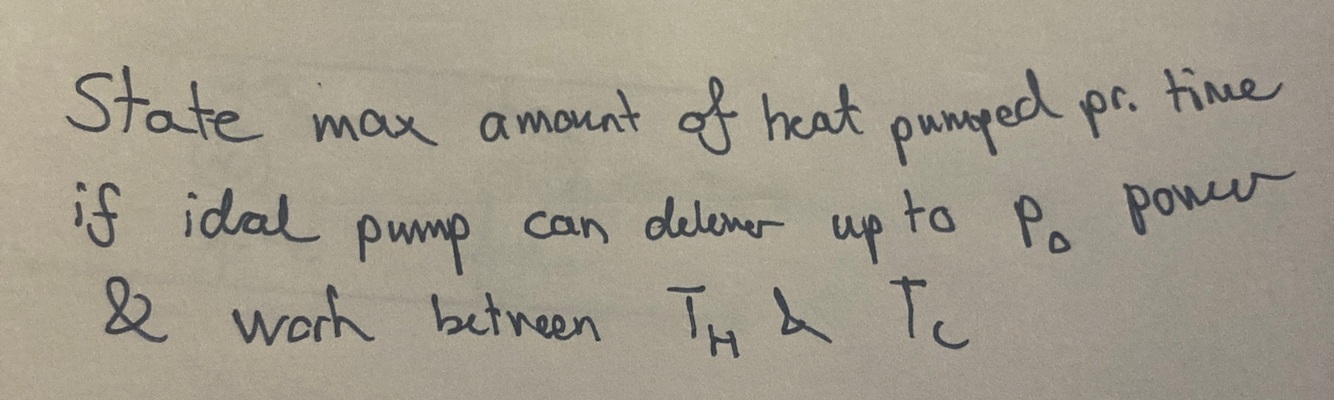 State max amount of heat pumped pr. time
if idal pump can delever up to P₀ power
& work between T_H & T_C